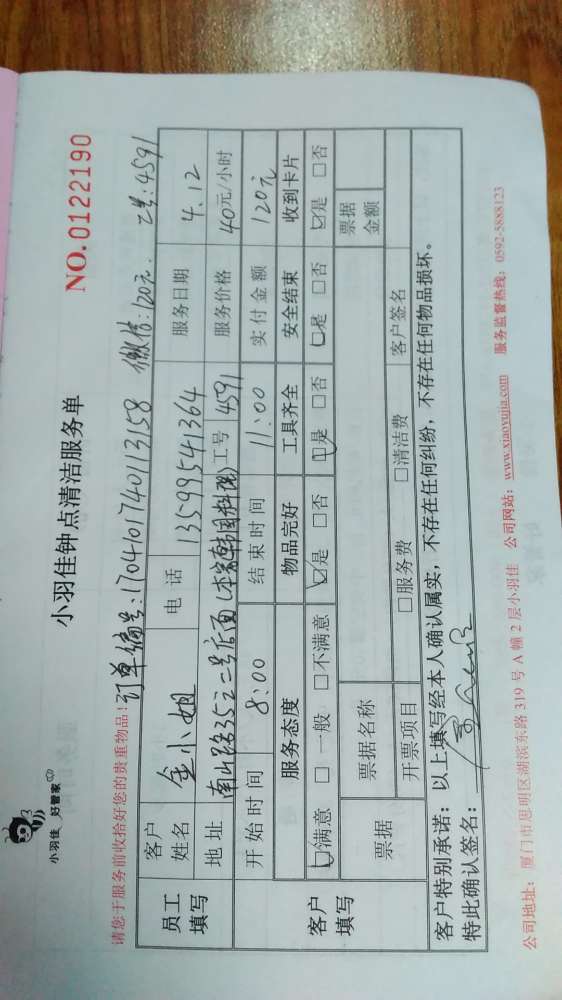 小羽佳 好管家
小羽佳钟点清洁服务单
NO.0122190
请您于服务前收拾好您的贵重物品!
订单编号:1704101740113158 微信:120元. 工号:4591
员工填写
客户姓名 金小姐 电话 13599541364 服务日期 4.12
地址 南山路352二号店面(本家韩国料理) 工号 4591 服务价格 40元/小时
客户填写
开始时间 8:00 结束时间 11:00 实付金额 120元
服务态度 物品完好 工具齐全 安全结束 收到卡片
☑满意 □一般 □不满意 ☑是 □否 ☑是 □否 ☑是 □否 ☑是 □否
票据 票据名称 票据金额
开票项目 □服务费 □清洁费 客户签名
客户特别承诺:以上填写经本人确认属实,不存在任何纠纷,不存在任何物品损坏。
特此确认签名:
公司地址:厦门市思明区湖滨东路319号A幢2层小羽佳 公司网站:www.xiaoyujia.com 服务监督热线:0592-5888123